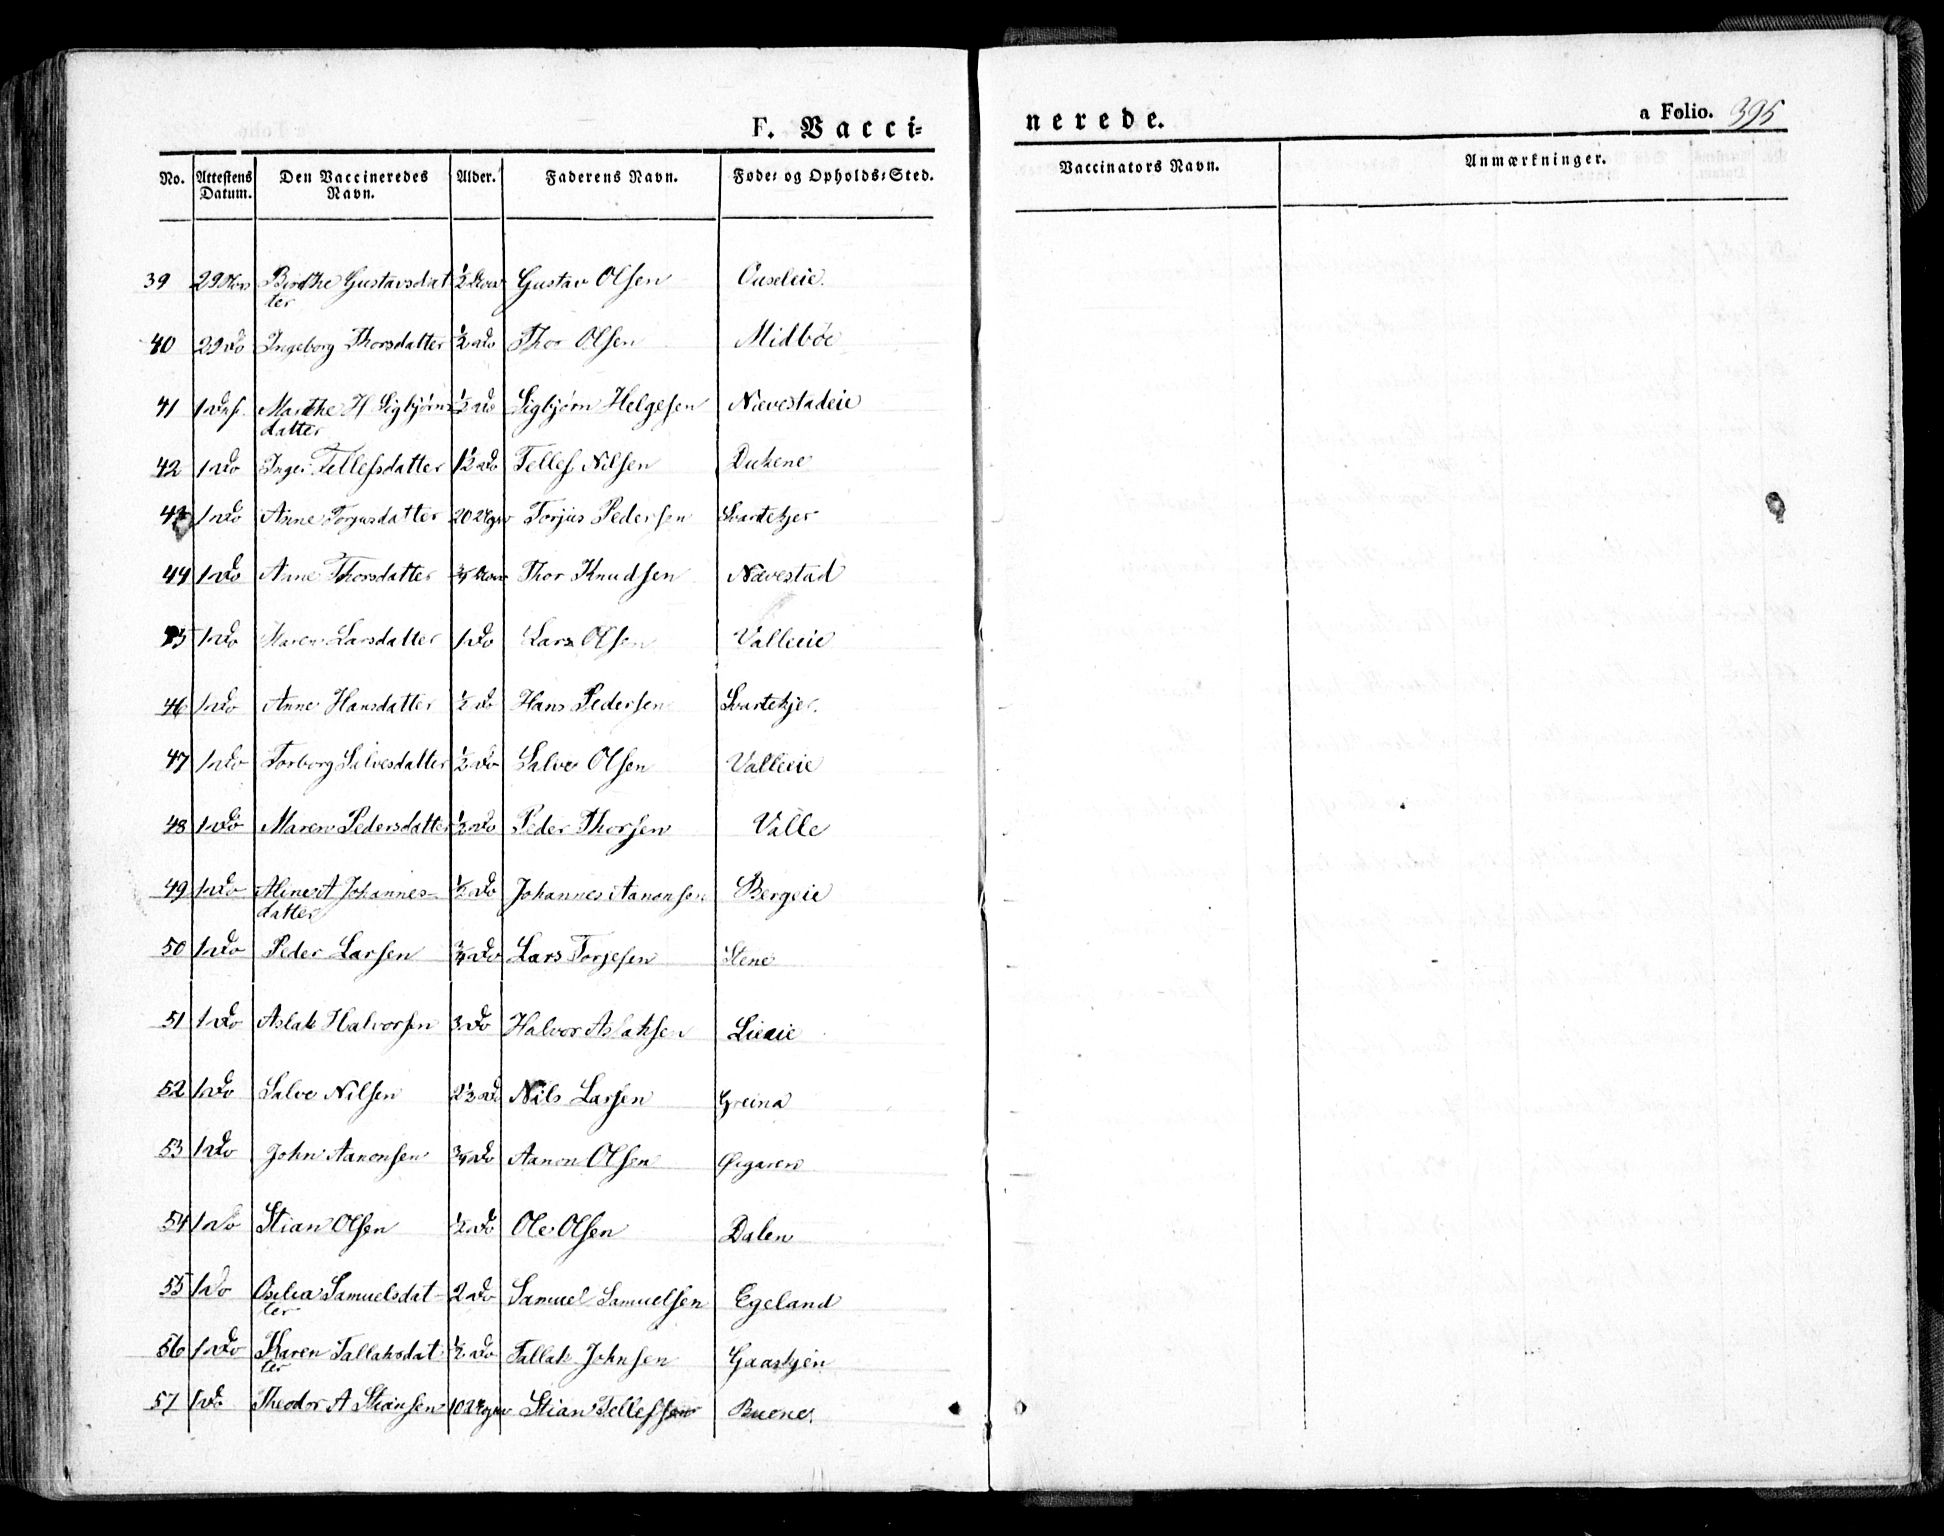 F. Vacci=
nerede.
a Folio. 395
No. Attestens Datum. Den Vaccineredes Navn. Alder. Faderens Navn. Føde= og Opholds=Sted. Vaccinators Navn. Anmærkninger.
39 29 Nov Birthe Gustavsdat ½ Gustav Olsen Ouseleie.
ter
40 29 Do Ingeborg Thorsdatter ½ Do Thor Olsen Midbøe
41 1 Marthe H Sigbjørns ½ Do Sigbjørn Helgesen Nævestadeie
datter
42 1 Do Inger Tellefsdatter 1½ Do Tellef Nilsen Dukene
43 1 Do Anne Torjusdatter 20 Uger Torjus Pedersen Svartekjer
44 1 Do Anne Thorsdatter ¾ Thor Knudsen Nævestad
45 1 Do Maren Larsdatter 1 Do Lars Olsen Valleeie
46 1 Do Anne Hansdatter ½ Do Hans Pedersen Svartekjer.
47 1 Do Torborg Salvesdatter ½ Do Salve Olsen Valleeie
48 1 Do Maren Pedersdatter ½ Do Peder Thorsen Valle
49 1 Do A Johannes- ½ Do Johannes Aanonsen Bergeie
datter
50 1 Do Peder Larsen ¾ Do Lars Torjesen Stene
51 1 Do Aslak Halvorsen 3 Do Halvor Aslaksen Lieeie
52 1 Do Salve Nilsen 2½ Do Nils Larsen Greina
53 1 Do John Aanonsen ¾ Do Aanon Olsen Øigaren
54 1 Do Stian Olsen ½ Do Ole Olsen Dalen
55 1 Do Oselia Samuelsdat- 2 Do Samuel Samuelsen Egeland
ter
56 1 Do Karen Tallaksdat ½ Do Tallak Johnsen Gaaskjen
ter
57 1 Do Theodor A Stiansen 10 Uger Stian Tellefsen Buene.